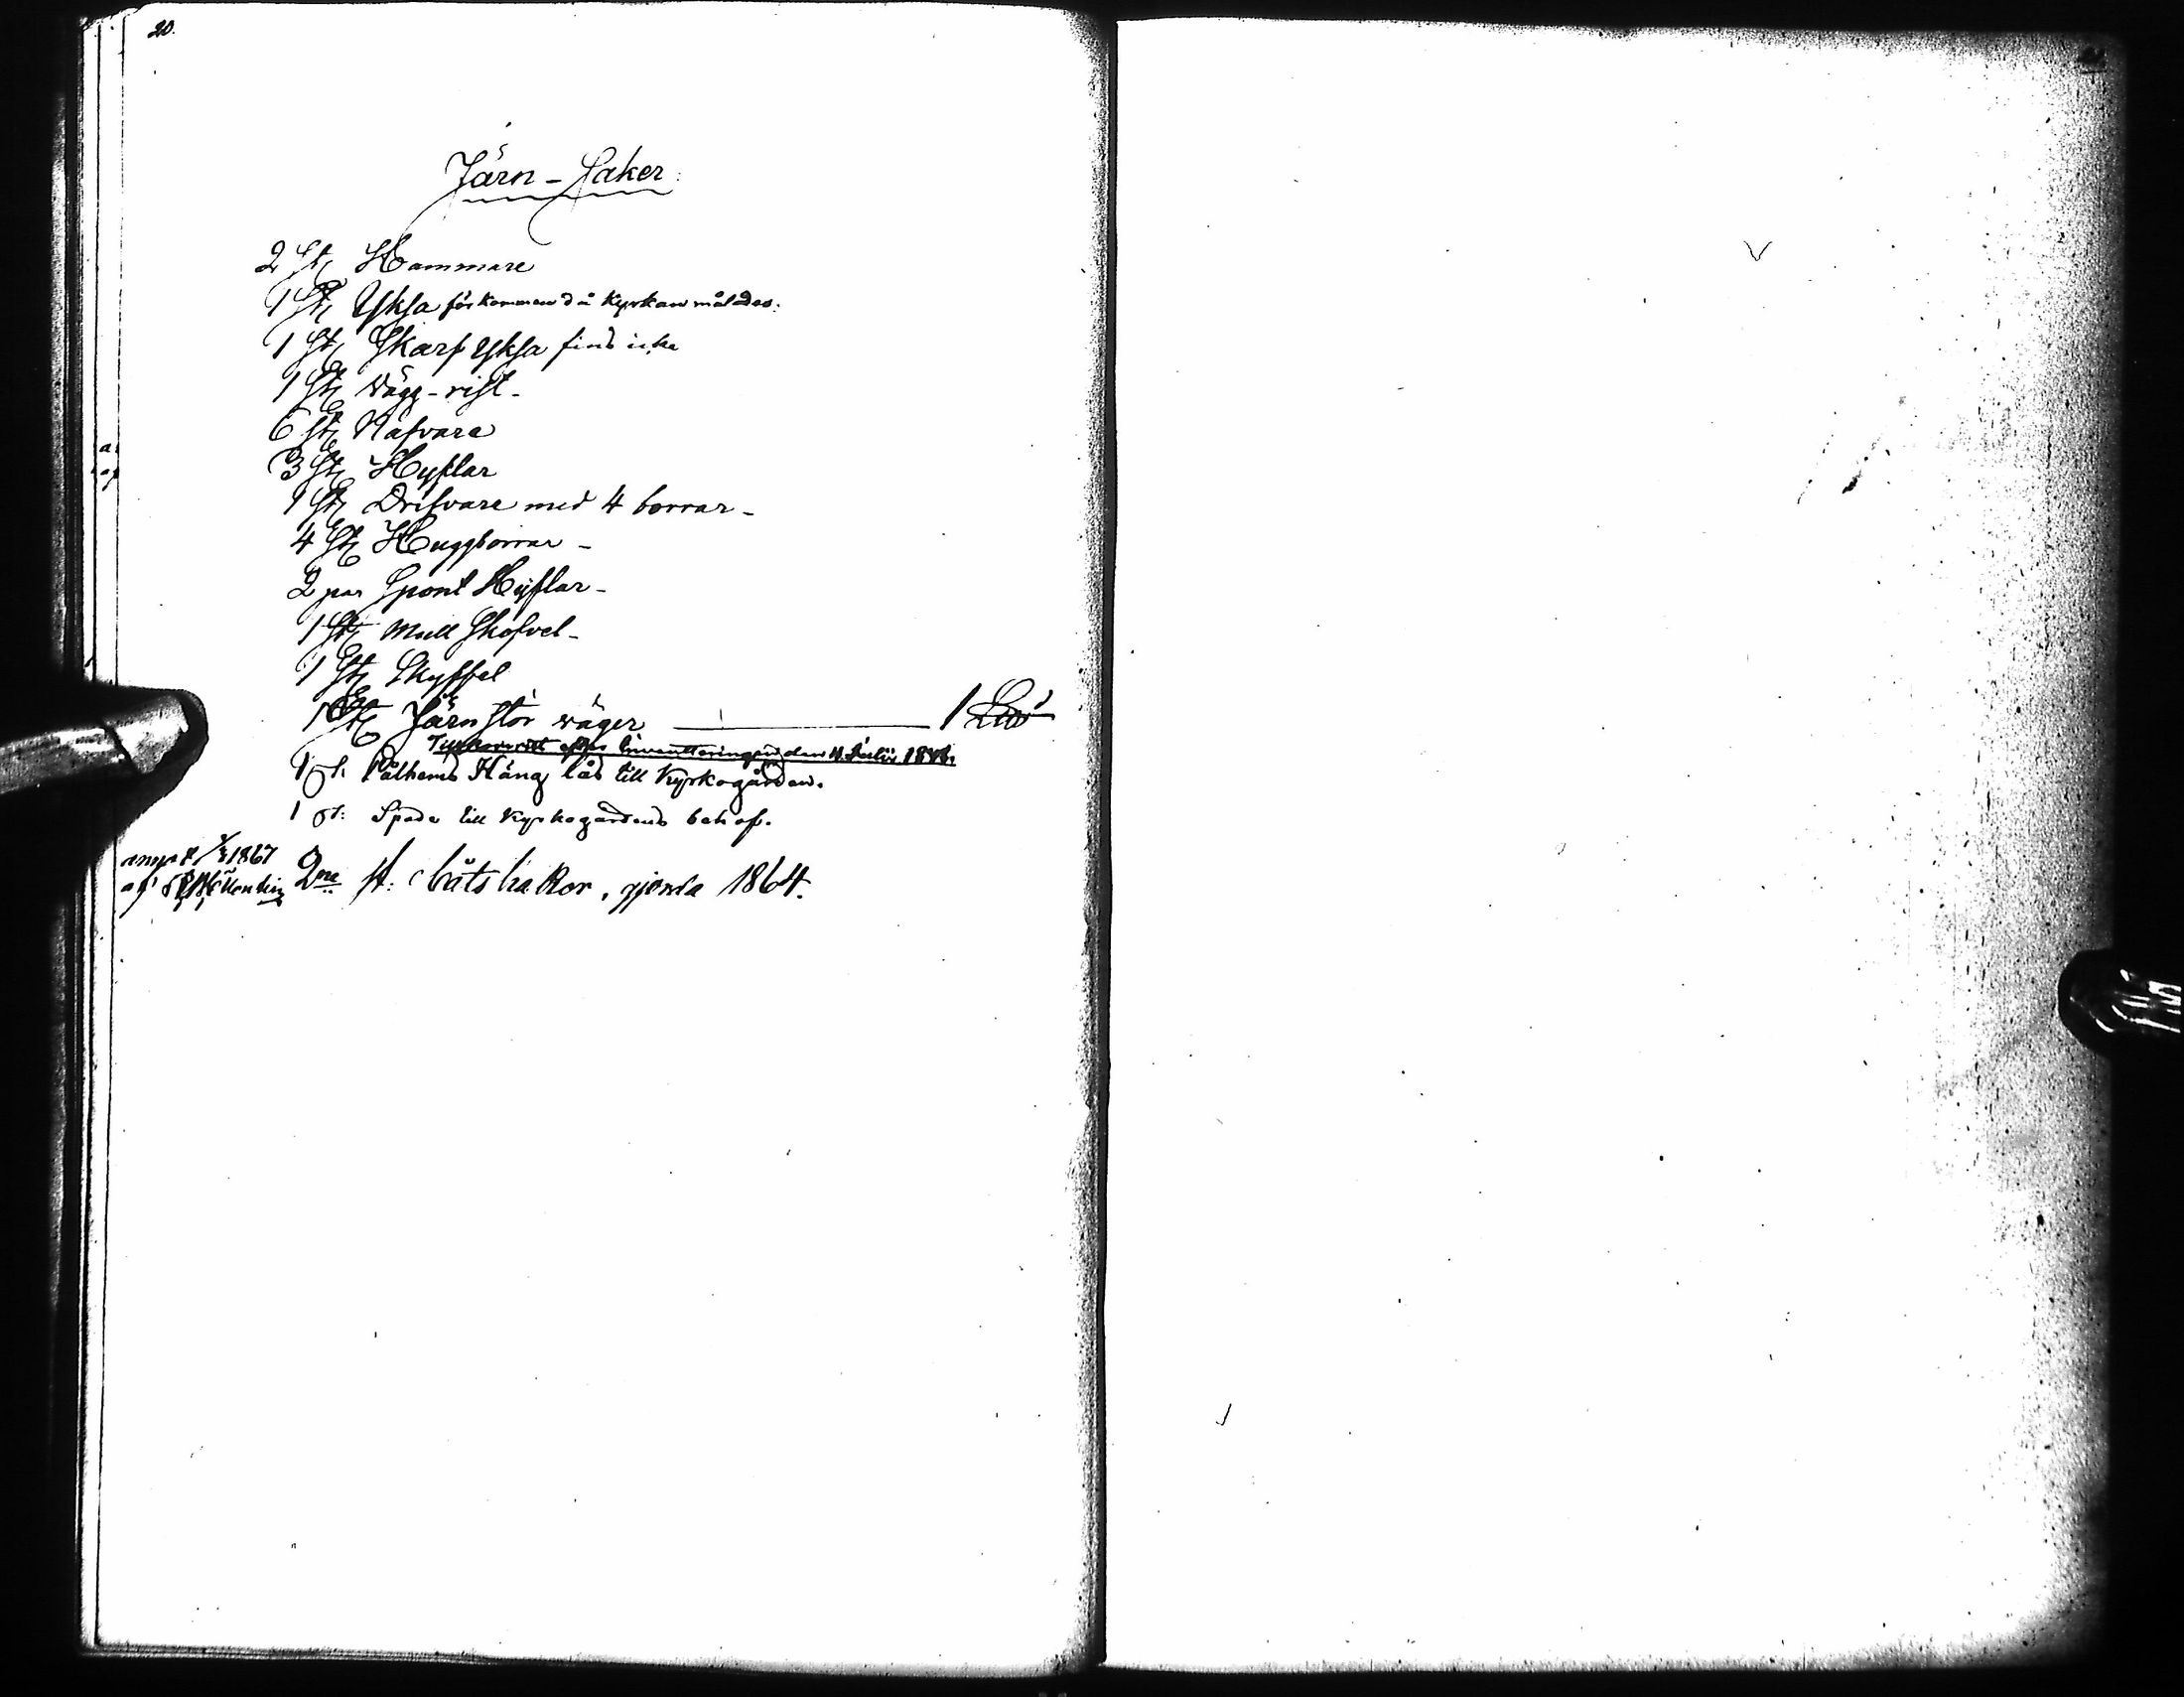 20.
Järn-Saker:
2 St Hammare
1 St Yksa förkommen då Kyrkan målades.
1 St Skarf yksa fins icke
1 St vägg-rist-
6 St Nafvara
3 St Hyflar
1 St Drifvare med 4 borrar-
4 St Huggborrar-
2 par Spont Hyflar-
1 St Mull Skofvel-
1 St Skyffel
1 St Järn Stör wäger 1
Tillkommit efter Inventeringen den 11 Julii
1 st Pålhems Häng lås till Kyrkogården.
1 st: Spade till Kyrkogårdens behof.
1867
af
2ne st: båtshakar, gjorda 1864.